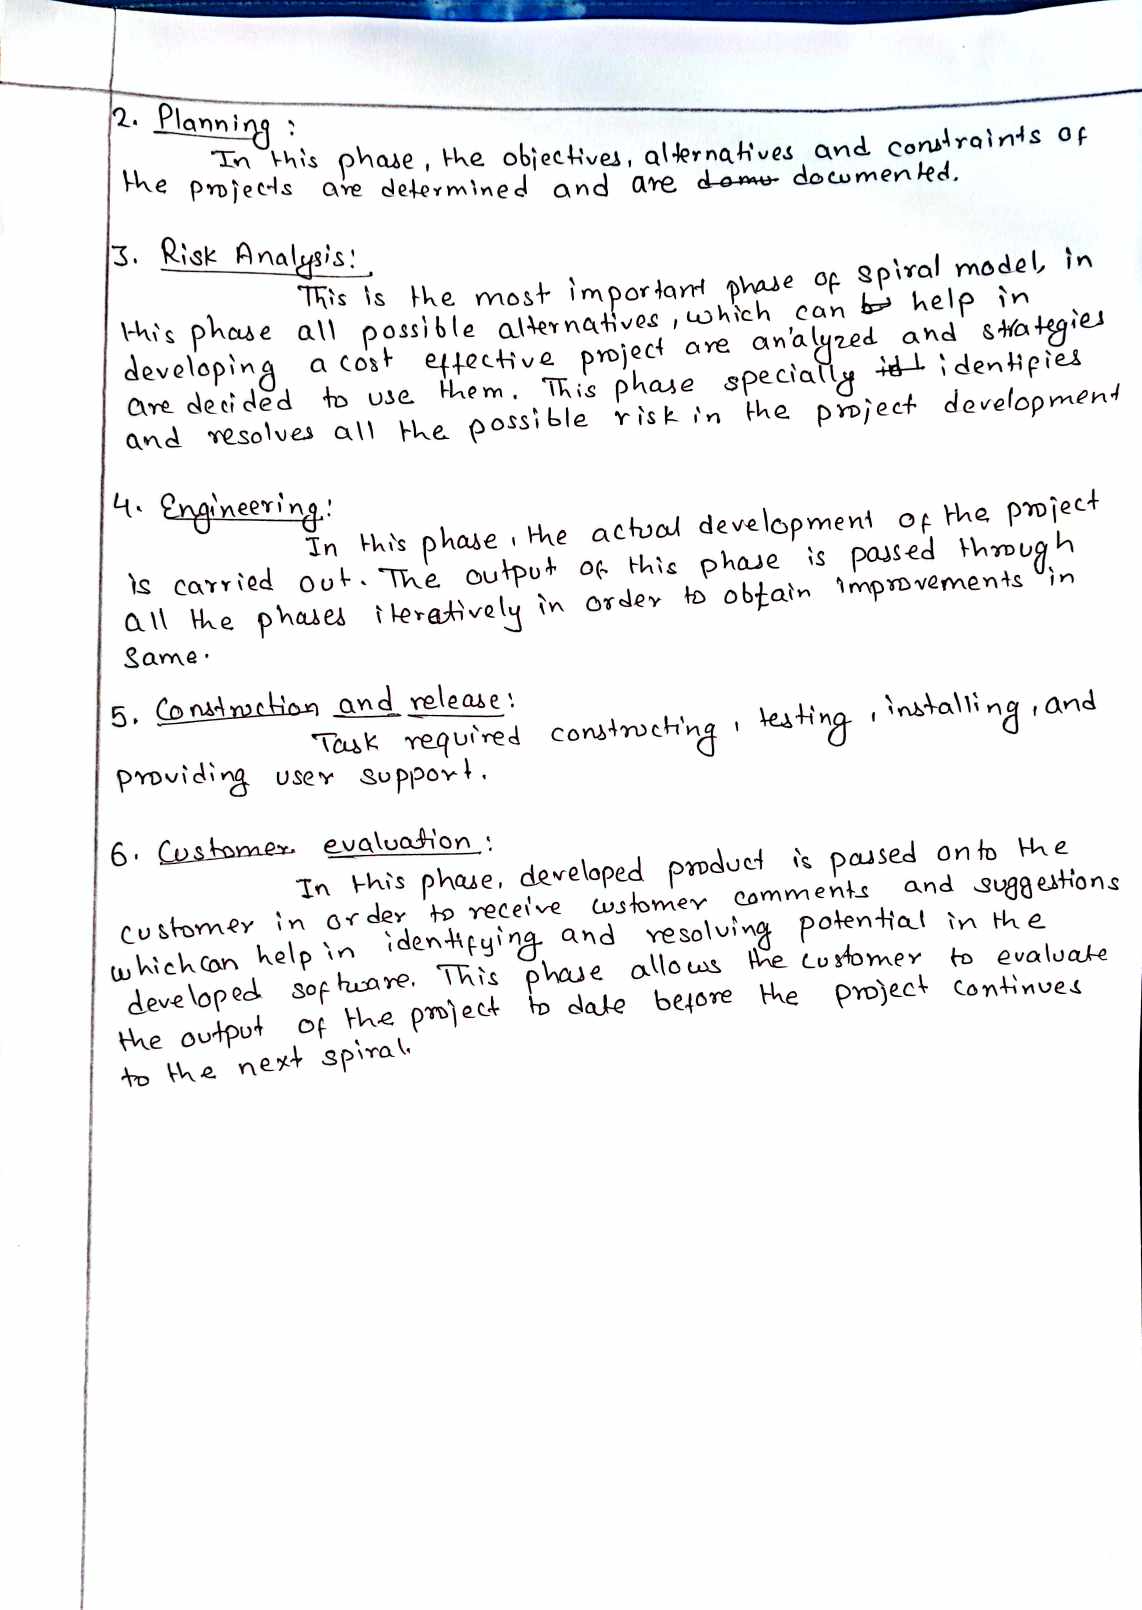 2. Planning :
In this phase, the objectives, alternatives and constraints of
the projects are determined and are documented.
3. Risk Analysis:
This is the most important phase of spiral model, in
this phase all possible alternatives, which can help in
developing a cost effective project are analyzed and strategies
are decided to use them. This phase specially identifies
and resolves all the possible risk in the project development
4. Engineering:
In this phase, the actual development of the project
is carried out. The output of this phase is passed through
all the phases iteratively in order to obtain improvements in
same.
5. Construction and release:
Task required constructing, testing, installing, and
providing user support.
6. Customer evaluation :
In this phase, developed product is passed onto the
customer in order to receive customer comments and suggestions
which can help in identifying and resolving potential in the
developed software. This phase allows the customer to evaluate
the output of the project to date before the project continues
to the next spiral.